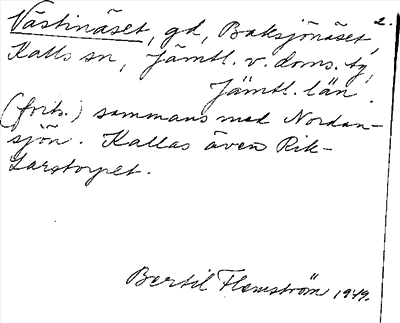 2.
Västinäset, gd, Baksjönäset,
Kalls sn, Jämtl. v. doms. tg,
Jämtl. län.
(forts.) sammans med Nordan-
sjön. Kallas även Rik-
Larstorpet.
Bertil Flemström 1949.